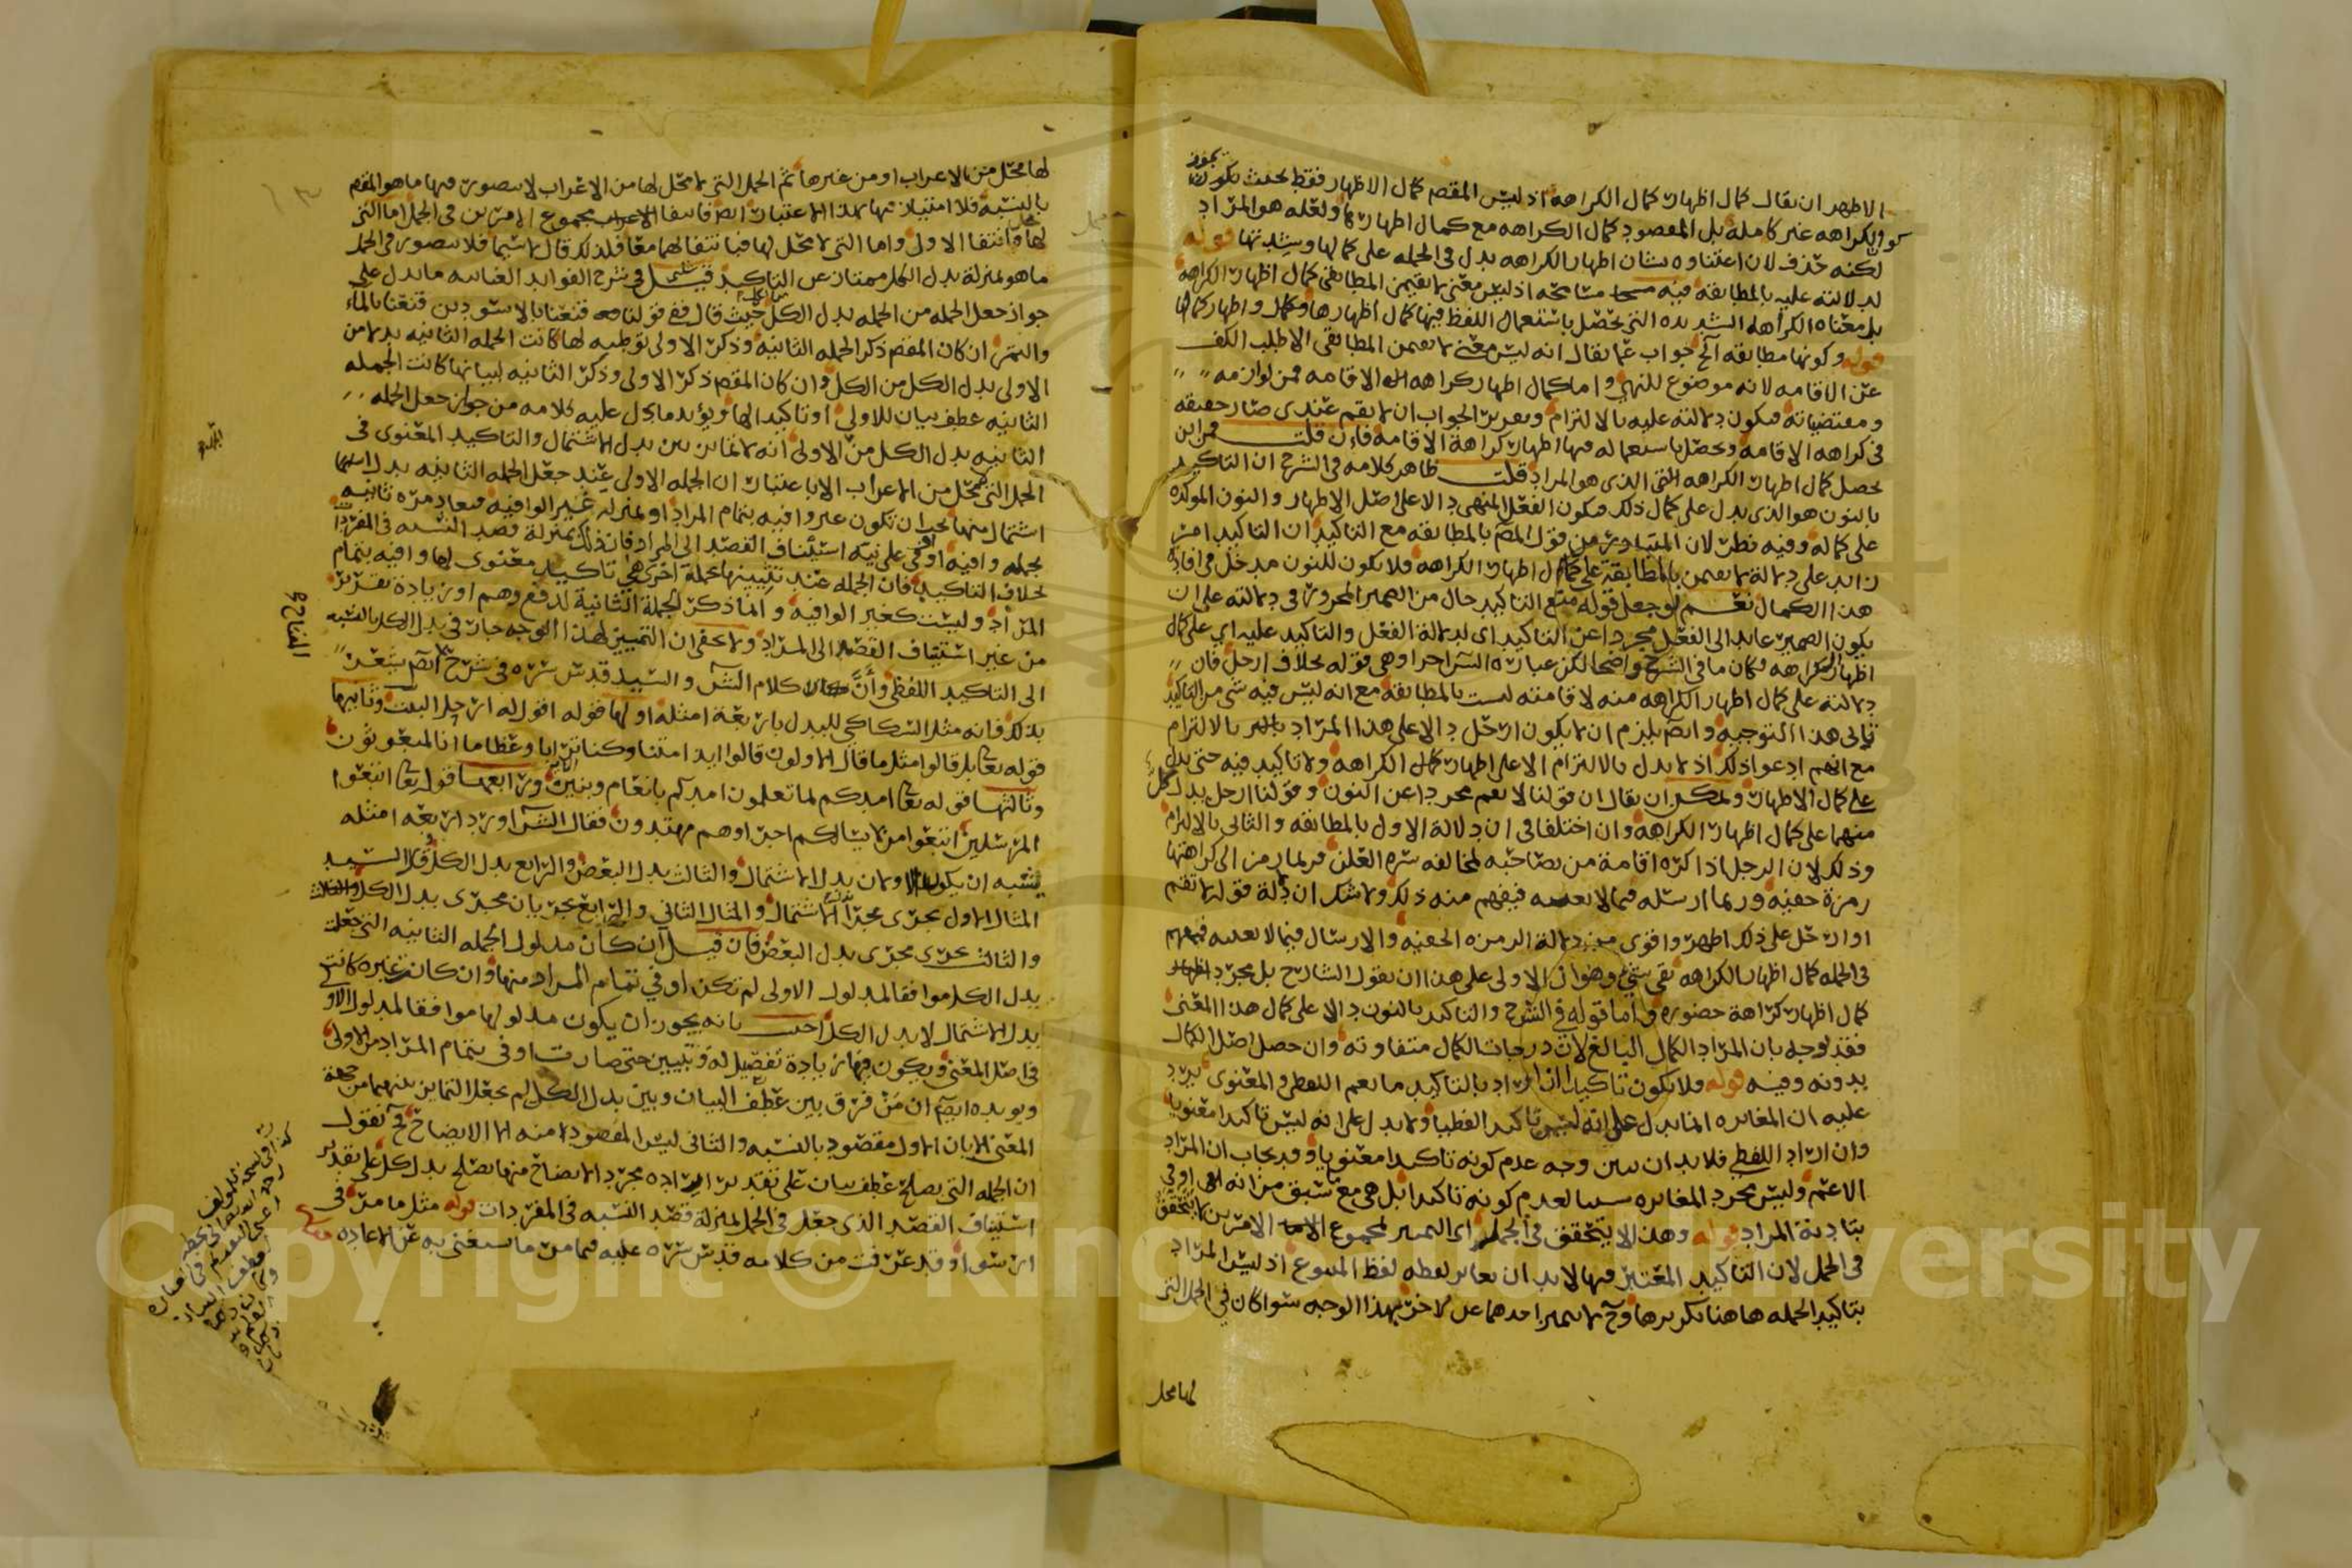 الاظهر ان يقال كمال اظهار كمال الكراهه اذ ليس المقصم كمال الاظهار فقط بحيث يجوز
كون الكراهه غير كاملة بل المقصود كمال الكراهه مع كمال اظهارها ولعله هو المراد
لكنه حذف لان اعتناه بشان اظهار الكراهه يدل في الجمله على كمالها وشدتها قوله
لدلالته عليه بالمطابقه فيه مسامحه اذ ليس معنى لا تقيمن المطابقى كمال اظهار الكراهه
بل معناه الكراهه الشديده التى تحصل باستعمال اللفظ فيها كمال اظهارها واظهار كمالها
قوله وكونها مطابقه الخ جواب عما يقال انه ليس معنى لا تقيمن المطابقى الا طلب الكف
عن الاقامه لانه موضوع للنهى واما كمال اظهار كراهه الاقامه فمن لوازمه
ومقتضياته فيكون دلالته عليه بالالتزام وتقرير الجواب ان لا تقم عندى صار حقيقه
فى كراهه الاقامه وتحصل باستعماله فيها اظهار كراهة الاقامه فان قلت فمن اين
يحصل كمال اظهار الكراهه التى الذى هو المراد قلت ظاهر كلامه فى الشرح ان التاكيد
بالنون هو الذى يدل على كمال ذلك فيكون الفعل المنهى دالا على اصل الاظهار والنون الموكده
على كماله وفيه نظر لان المتبادر من قول المص بالمطابقه مع التاكيد ان التاكيد امر
زايد على دلالة لا تقيمن بالمطابقة على كمال اظهار الكراهه فلا يكون للنون مدخل فى افادة
هذا الكمال نعم لو جعل قوله مع التاكيد حال من الضمير المجرور فى دلالته على ان
يكون الضمير عايد الى الفعل مجردا عن التاكيد اى لدلالة الفعل والتاكيد عليه اى على كمال
اظهار الكراهه وكان ما فى الشرح واضحا لكن عبارة الش اخرا وهى قوله بخلاف ارحل فان
دلالته على كمال اظهار الكراهه منه لاقامته ليست بالمطابقه مع انه ليس فيه شى من التاكيد
تابى هذا التوجيه وايضا يلزم ان لا يكون ارحل دالا على هذا المراد بالالتزام
مع انهم ادعوا ذلك اذ لا يدل بالالتزام الا على اظهار كمال الكراهه ولا تاكيد فيه حتى يدل
على كمال الاظهار ويمكن ان يقال ان قولنا لا تقم مجردا عن النون وقولنا ارحل يدل كل
منهما على كمال اظهار الكراهه وان اختلفا فى ان دلالة الاول بالمطابقه والثانى بالالتزام
وذلك لان الرجل اذا كره اقامة من يصاحبه لمخالفه سره العلن فربما رمز الى كراهتها
رمزة خفيه وربما ارسله فيما لا يعنيه فيفهم منه ذلك ولا شك ان دلة قوله لا تقم
او ارحل على ذلك اظهر واقوى من دلالة الرمزه الخفيه والارسال فيما لا يعنيه فيفهم
فى الجمله كمال اظهار الكراهه بقى شئ وهو ان الاولى على هذا ان يقول الشارح بل مجرد اظهار
كمال اظهار كراهة حضوره واما قوله فى الشرح والتاكيد بالنون دالا على كمال هذا المعنى
فقد يوجه بان المراد الكمال البالغ لان درجات الكمال متفاوته وان حصل اصل الكمال
بدونه وفيه قوله فلا يكون تاكيدا ان اراد بالتاكيد ما يعم اللفظى والمعنوى يرد
عليه ان المغايره انما يدل على انه ليس تاكيدا لفظيا ولا يدل على انه ليس تاكيدا معنويا
وان اراد اللفظى فلا بد ان يبين وجه عدم كونه تاكيدا معنويا وقد يجاب ان المراد
الاعم وليس مجرد المغايره سببا لعدم كونه تاكيدا بل هى مع ما سبق من انه اوفى
بتادية المراد قوله وهذا لا يتحقق فى الجمل اى التميز بمجموع الامرين لا يتحقق
فى الجمل لان التاكيد المعتبر فيها لا بد ان يغاير لفظه لفظ المتبوع اذ ليس المراد
بتاكيد الجمله هاهنا تكريرها وح لا يتميز احدهما عن الاخر بهذا الوجه سوا كان فى الجمل التى
لها محل
لها محل من الاعراب او من غيرها ثم الجمل التى لا محل لها من الاعراب لا يتصور فيها ما هو المقصم
بالنسبه فلا امتياز فيها بهذا الاعتبار ايضا فانتفا مجموع الامرين فى الجمل اما التى
لها فانتفا الاول واما التى لا محل لها فبانتفائهما معا فلذلك قال لا سيما فلا يتصور فى الجمل
ما هو بمنزلة بدل الكل ممتاز عن التاكيد قيل فى شرح الفوايد الغياثيه ما يدل على
جواز جعل الجمله من الجمله بدل الكل حيث قال ففى قولنا قنعنا بالاسودين قنعنا بالماء
والتمر ان كان المقصم ذكر الجمله الثانيه وذكر الاولى توطيه لها كانت الجمله الثانيه بدلا من
الاولى بدل الكل من الكل وان كان المقصم ذكر الاولى وذكر الثانيه لبيانها كانت الجمله
الثانيه عطف بيان للاولى او تاكيدا لها ويؤيد ما يدل عليه كلامه من جواز جعل الجمله
الثانيه بدل الكل من الاولى انه لا تمايز بين بدل الاشتمال والتاكيد المعنوى فى
الجمل التى لا محل من الاعراب الا باعتبار ان الجمله الاولى عند جعل الجمله الثانيه بدل اشتمال
منها يجب ان تكون غير وافيه بتمام المراد او بمنزلة غير الوافيه فيعاد مره ثانيه
بجمله وافيه اوفى على نية استئناف القصد الى المراد فان ذلك بمنزلة قصد النسبه فى المفردات
بخلاف التاكيد فان الجمله عند تثنيتها بجملة اخرى هى تاكيد معنوى لها وافيه بتمام
المراد وليست كغير الوافيه وانما ذكر الجملة الثانية لدفع وهم او زيادة تقرير
من غير استيناف القصد الى المراد ولا يخفى ان التمييز لهذا الوجه جار فى بدل الكل بالنسبه
الى التاكيد اللفظى وأن كلام الش والسيد قدس سره فى شرح المفتاح ايضم يشعر
بذلك فانه مثل السكاكى للبدل باربعة امثله اولها قوله اقول له ارحل البيت وثانيها
قوله تعا بل قالوا مثل ما قال الاولون قالوا ايذا متنا وكنا ترابا وعظاما انا لمبعوثون
وثالثها قوله تعا امدكم بما تعلمون امدكم بانعام وبنين ورابعها قوله تعا اتبعوا
المرسلين اتبعوا من لا يسالكم اجرا وهم مهتدون فقال الش اورد اربعه امثله
يشبه ان يكون الاولان بدل الاشتمال والثالث بدل البعض والرابع بدل الكل وقال السيد
المثال الاول يجرى مجرا بدل الاشتمال والمثال الثانى والرابع يجريان مجرى بدل الكل
والثالث يجرى مجرى بدل البعض فان قيل ان كان مدلول الجمله الثانيه التى جعلت
بدل الكل موافقا لمدلول الاولى لم تكن اوفى تمام المراد منها وان كان غيره كانت
بدل الاشتمال لا بدل الكل اجيب بانه يجوز ان يكون مدلولها موافقا لمدلول الاولى
فى اصل المعنى ويكون فيها زيادة تفصيل له وتبيين حتى صارت اوفى بتمام المراد من الاولى
ويويده ايضم ان من فرق بين عطف البيان وبين بدل الكل لم يجعل التمايز بينهما من جهة
المعنى الا بان الاول مقصود بالنسبه والثانى ليس المقصود منه الا الايضاح فح نقول
ان الجمله التى يصلح عطف بيان على تقدير ايراده مجرد الايضاح منها يصلح بدل كل على تقدير
استيناف القصد الذى جعل فى الجمل بمنزلة قصد النسبه فى المفردات قوله مثل ما مر فى
ارسوا وقد عرفت من كلامه قدس سره عليه فيما مر ما يستغنى به عن الاعاده
المفتاح